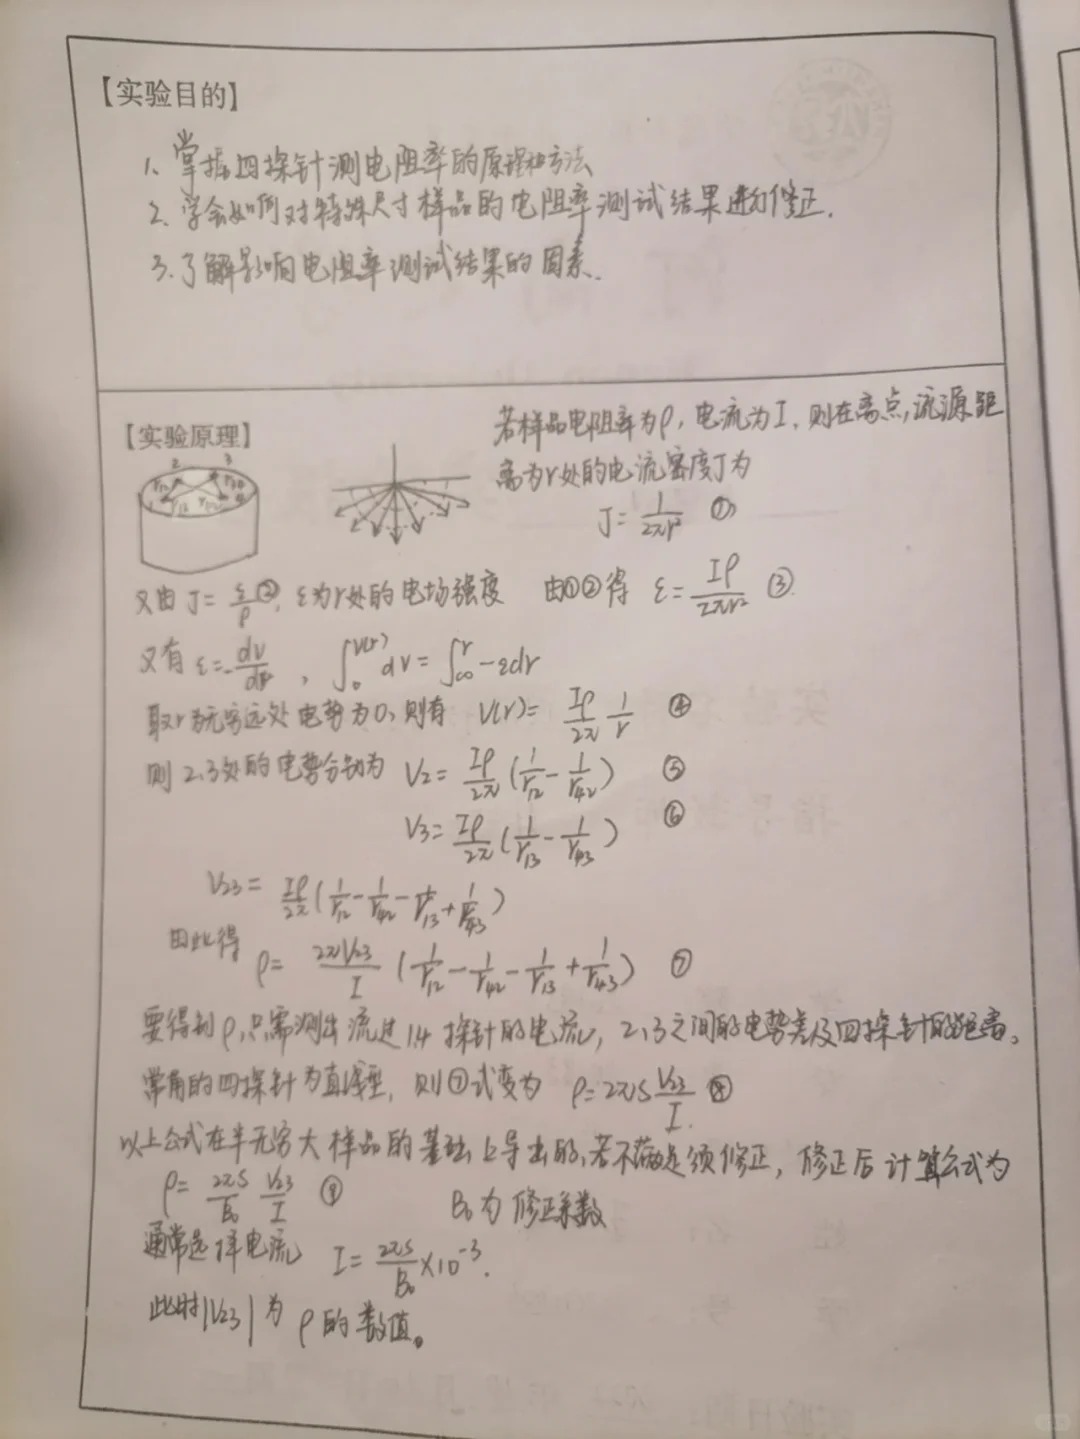 【实验目的】
1、掌握四探针测电阻率的原理和方法
2、学会如何对特殊尺寸样品的电阻率测试结果进行修正.
3、了解影响电阻率测试结果的因素.
【实验原理】
若样品电阻率为ρ,电流为I,则在离点流源距
离为r处的电流密度J为
J=1/2πr² ①
又由J=ε/ρ②,ε为r处的电场强度 由①②得 ε=Iρ/2πr² ③
又有 ε=-dV/dr , ∫₀^V(r) dV=∫∞^r -εdr
取r为无穷远处电势为0,则有 V(r)=Iρ/2π 1/r ④
则2、3处的电势分别为 V2=Iρ/2π(1/r12-1/r42) ⑤
V3=Iρ/2π(1/r13-1/r43) ⑥
V23=Iρ/2π(1/r12-1/r42-1/r13+1/r43)
由此得 ρ=2πV23/I (1/r12-1/r42-1/r13+1/r43) ⑦
要得到ρ,只需测出流过1,4探针的电流,2、3之间的电势差及四探针的距离。
常用的四探针为直线型,则⑦式变为 ρ=2πS V23/I ⑧
以上公式在半无穷大样品的基础上导出的,若不满足须修正,修正后计算公式为
ρ=2πS/B₀ V23/I ⑨ B₀为修正系数
通常选择电流 I=2πS/B₀×10⁻³.
此时|V23|为ρ的数值。